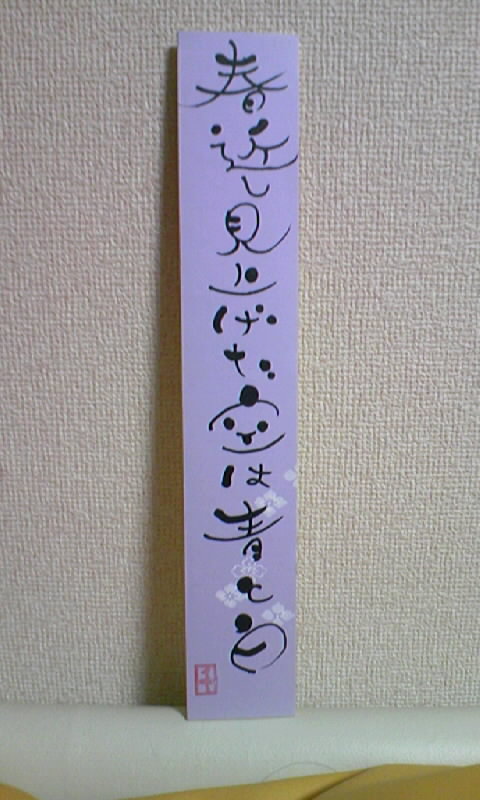 春近し見上げた空は青と白